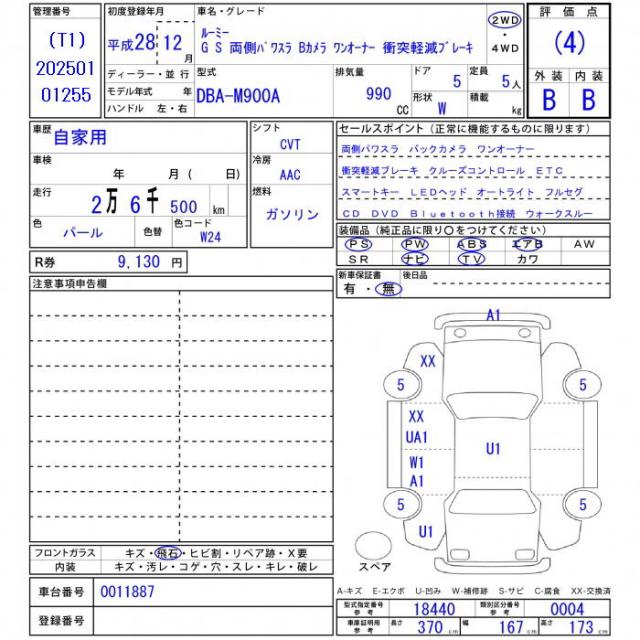 管理番号
(T1)
202501
01255
初度登録年月
平成28 12
年 月
ディーラー・並 行
モデル年式 年
ハンドル 左・右
車名・グレード
ルーミー
G S 両側パワスラ Bカメラ ワンオーナー 衝突軽減ブレーキ
2WD
・
4WD
型式
DBA-M900A
排気量
990
CC
ドア
5
定員
5人
形状
W
積載
kg
評 価 点
(4)
外 装 内 装
B B
車歴
自家用
車検
年 月 ( 日)
走行
2万 6千 500 km
色
パール
色替
色コード
W24
シフト
CVT
冷房
AAC
燃料
ガソリン
R券 9,130 円
セールスポイント (正常に機能するものに限ります)
両側パワスラ バックカメラ ワンオーナー
衝突軽減ブレーキ クルーズコントロール ETC
スマートキー LEDヘッド オートライト フルセグ
CD DVD Bluetooth接続 ウォークスルー
装備品 (純正品に限り〇をつけてください)
PS PW ABS エアB AW
SR ナビ TV カワ
新車保証書
有 ・ 無
後日品
注意事項申告欄
A1
XX
5 5
XX
UA1
W1
A1
U1
5 5
U1
スペア
フロントガラス キズ・飛石・ヒビ割・リペア跡・X要
内装 キズ・汚レ・コゲ・穴・スレ・キレ・破レ
車台番号 0011887
登録番号
A-キズ E-エクボ U-凹み W-補修跡 S-サビ C-腐食 XX-交換済
型式指定番号 参考 18440 類別区分番号 参考 0004
車庫証明用 参考 長さ 370 cm 幅 167 cm 高さ 173 cm